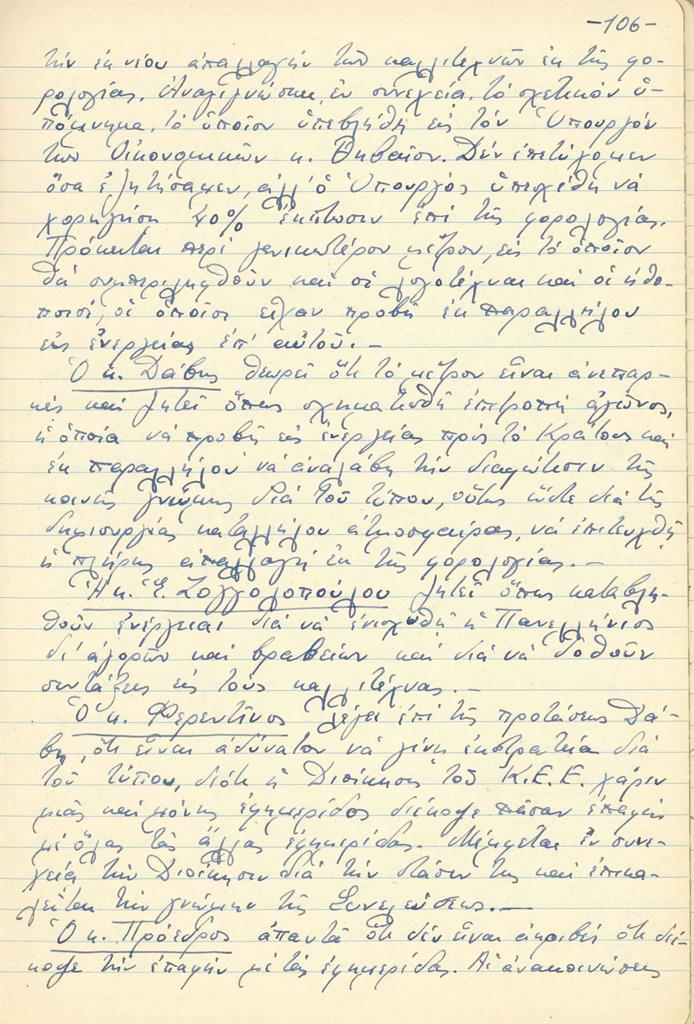 -106-
τήν ἐκ νέου ἀπαλλαγήν τῶν καλλιτεχνῶν ἐκ τῆς φο-
ρολογίας. Ἀναγιγνώσκει, ἐν συνεχείᾳ, τό σχετικόν ὑ-
πόμνημα, τό ὁποῖον ὑπεβλήθη εἰς τόν Ὑπουργόν
τῶν Οἰκονομικῶν κ. Θηβαῖον. Δέν ἐπετύχαμεν
ὅσα ἐζητήσαμεν, ἀλλ' ὁ Ὑπουργός ὑπεσχέθη νά
χορηγήσῃ 40% ἔκπτωσιν ἐπί τῆς φορολογίας.
Πρόκειται περί γενικωτέρου μέτρου, εἰς τό ὁποῖον
θά συμπεριληφθοῦν καί οἱ λογοτέχναι καί οἱ ἠθο-
ποιοί, οἱ ὁποῖοι εἶχαν προβῆ ἐκ παραλλήλου
εἰς ἐνεργείας ἐπ' αὐτοῦ.-
Ὁ κ. Δάβης θεωρεῖ ὅτι τό μέτρον εἶναι ἀνεπαρ-
κές καί ζητεῖ ὅπως σχηματισθῆ ἐπιτροπή ἀγῶνος,
ἡ ὁποία νά προβῆ εἰς ἐνεργείας πρός τό Κράτος καί
ἐκ παραλλήλου νά ἀναλάβῃ τήν διαφώτισιν τῆς
κοινῆς γνώμης διά τοῦ τύπου, οὕτως ὥστε διά τῆς
δημιουργίας καταλλήλου ἀτμοσφαίρας, νά ἐπιτευχθῆ
ἡ πλήρης ἀπαλλαγή ἐκ τῆς φορολογίας.-
Ἡ κ. Ἑ. Ζογγολοπούλου ζητεῖ ὅπως καταβλη-
θοῦν ἐνέργειαι διά νά ἐνισχυθῆ ἡ Πανελλήνιος
δι' ἀγορῶν καί βραβείων καί διά νά δοθοῦν
συντάξεις εἰς τούς καλλιτέχνας.-
Ὁ κ. Φερεντῖνος λέγει ἐπί τῆς προτάσεως Δά-
βη, ὅτι εἶναι ἀδύνατον νά γίνῃ ἐκστρατεία διά
τοῦ τύπου, διότι ἡ Διοίκησις τοῦ Κ.Ε.Ε. χάριν
μιᾶς καί μόνης ἐφημερίδος διέκοψε πᾶσαν ἐπαφήν
μέ ὅλας τάς ἄλλας ἐφημερίδας. Μέμφεται ἐν συνε-
χείᾳ τήν Διοίκησιν διά τήν στάσιν της καί ἐπικα-
λεῖται τήν γνώμην τῆς Συνελεύσεως.-
Ὁ κ. Πρόεδρος ἀπαντᾶ ὅτι δέν εἶναι ἀκριβές ὅτι διέ-
κοψε τήν ἐπαφήν μέ τάς ἐφημερίδας. Αἱ ἀνακοινώσεις